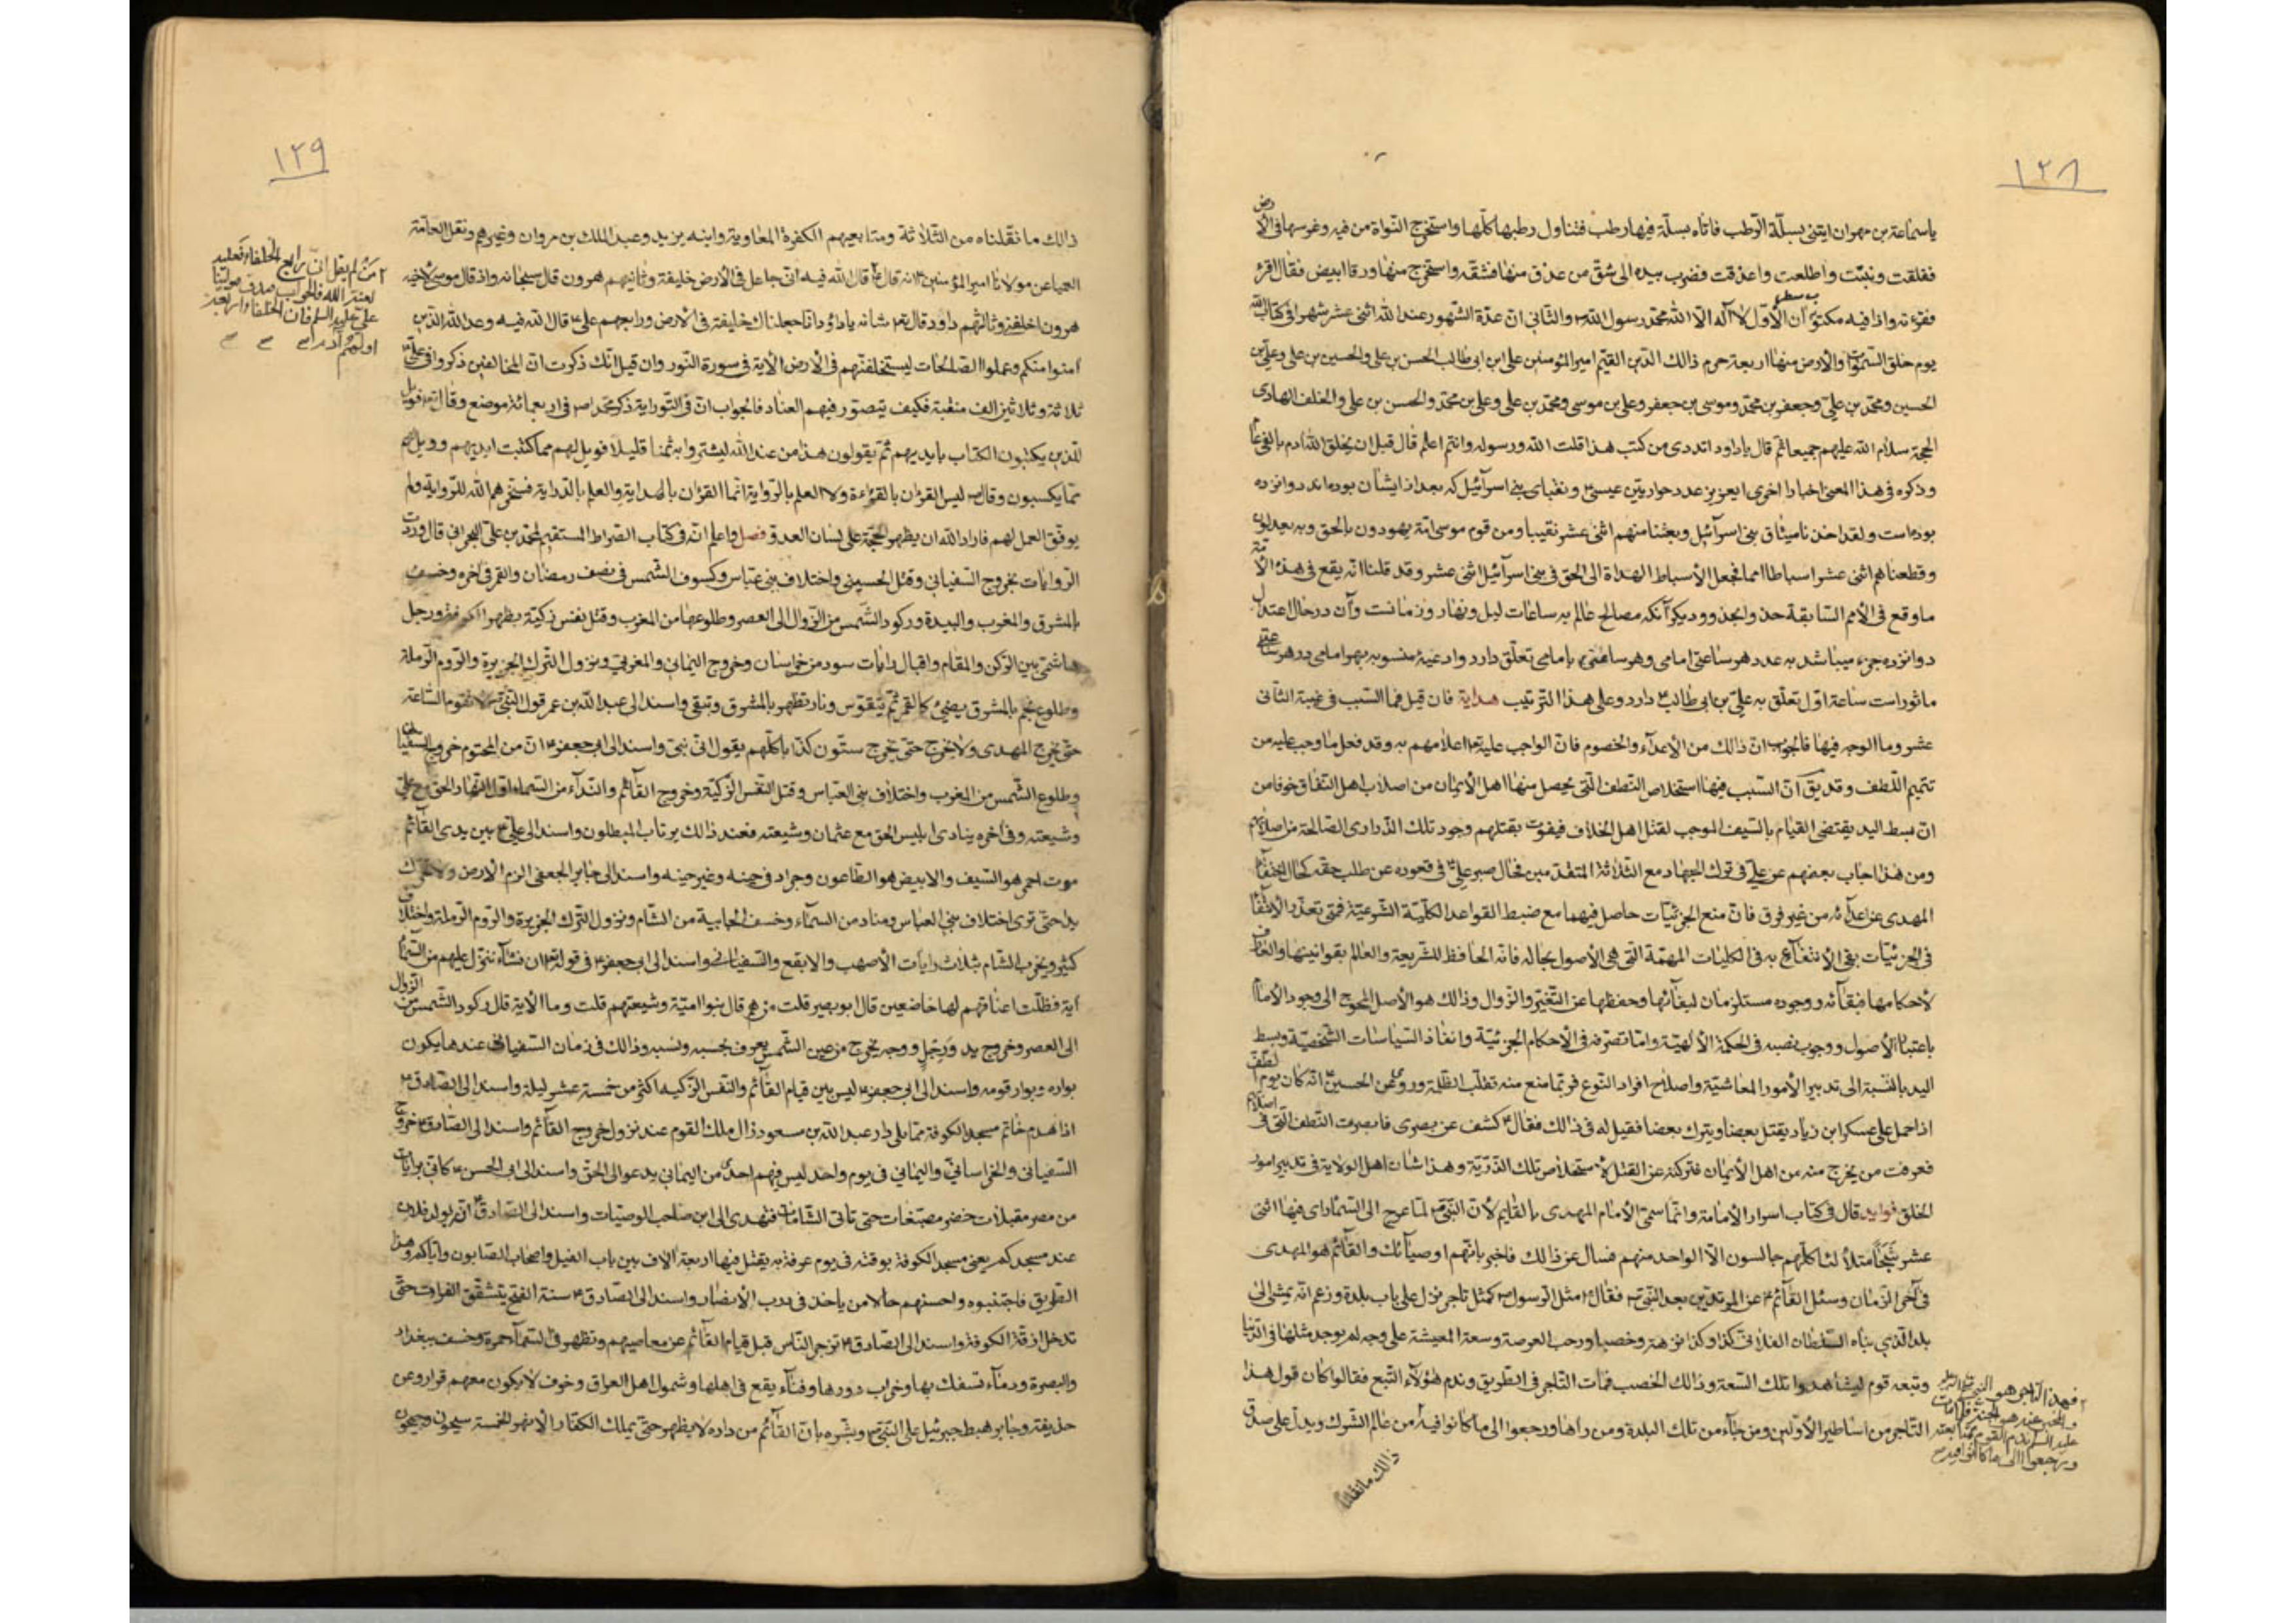 ١٢٨
ياسماعة بن مهران ايتنى بسلّة الرّطب فاتاه بسلّة فيها رطب فتناول رطبها كلّها واستخرج النّواة من فيه وغرسها فى الأرض
ففلقت ونبتت واطلعت واعذقت فضرب بيده الى شقّ من عذق منها فشقّه واستخرج منها ورقا ابيض فقال اقرء
فقرءته واذا فيه مكتوب سطر ان الأوّل لا اله الّا الله محمّد رسول الله والثانى انّ عدّة الشّهور عند الله اثنى عشر شهرا فى كتاب الله
يوم خلق السّموات والأرض منها اربعة حرم ذالك الدّين القيّم امير المؤمنين على ابن ابى طالب الحسن بن على والحسين بن على وعلى بن
الحسين ومحمّد بن علىّ وجعفر بن محمّد وموسى بن جعفر وعلى بن موسى ومحمّد بن على وعلى بن محمّد والحسن بن على والخلف الهادى
الحجّة سلام الله عليهم جميعا ثمّ قال ياداود اتدرى من كتب هذا قلت الله ورسوله وانتم اعلم قال قبل ان يخلق الله ادم بالفى عام
وذكره فى هذا المعنى اخبارا اخرى ايعزيز عدد حواريّين عيسى ونقباى بنى اسرآئيل كه بعد از ايشان بوده‌اند دوانزده
بوده‌است ولقد اخذنا ميثاق بنى اسرآئيل وبعثنا منهم اثنى عشر نقيبا ومن قوم موسى امّة يهدون بالحق وبه يعدلون
وقطعناهم اثنى عشر اسباطا امما فجعل الأسباط الهداة الى الحق فى بنى اسرآئيل اثنى عشر وقد قلنا انّه يقع فى هذه الأمّة
ما وقع فى الأمم السّابقة حذو وديكر آنكه مصالح عالم به ساعات ليل ونهار وزمانست وآن در حال اعتدال
دوانزده جزء ميباشد به عدد هر ساعتى امامى وهر ساعتى بامامى تعلّق دارد وادعيهٔ منسوبه بهر امامى در هر ساعتى
ماثور است ساعة اوّل تعلّق به علىّ بن ابى طالب دارد وعلى هذا التّرتيب هداية فان قيل فما السّبب فى غيبة الثّانى
عشر وما الوجه فيها فالجواب انّ ذالك من الأعدآء والخصوم فانّ الواجب عليه اعلامهم به وقد فعل ما وجب عليه من
تتميم اللّطف وقد يق انّ السّبب فيها استخلاص النّطف الّتى يحصل منها اهل الأيمان من اصلاب اهل النّفاق خوفا من
انّ بسط اليد يقتضى القيام بالسّيف الموجب لقتل اهل الخلاف فيفوت بقتلهم وجود تلك الذّرارى الصّالحة من اصلابهم
ومن هذا اجاب بعضهم عن علىّ فى ترك الجهاد مع الثّلاثة المتقدّمين فحال صبر علىّ فى قعوده عن طلب حقّه كحال اختفآء
المهدى عن اعدآئه من غير فرق فانّ منع الجزئيّات حاصل فيهما مع ضبط القواعد الكلّيّة الشّرعيّة فمتى تعذّر الأنتفاع
فى الجزئيّات بقى الأنتفاع به فى الكليات المهمّة الّتى هى الأصول بحاله فانّه الحافظ للشّريعة والعالم بقوانينها والعارف
لأحكامها فبقآئه ووجوده مستلزمان لبقآئها وحفظها عن التّغيّر والزّوال وذالك هو الأصل المحوج الى وجود الأمام
باعتبار الأصول ووجوب نصبه فى الحكمة الألهيّة وامّا تصرّفه فى الأحكام الجزئيّة وانفاذ السّياسات الشّخصيّة وبسط
اليد بالنّسبة الى تدبير الأمور المعاشيّة واصلاح افراد النّوع فربّما منع منه تغلّب الظّلمة وروى عن الحسين انّه كان يوم الطّف
اذا حمل على عسكر ابن زياد يقتل بعضا ويترك بعضا فقيل له فى ذالك فقال كشف عن بصرى فابصرت النّطف الّتى فى اصلابهم
فعرفت من يخرج منه من اهل الأيمان فتركته عن القتل لأستخلاص تلك الذّرّيّة وهذا شان اهل الولاية فى تدبير امور
الخلق فوايد قال فى كتاب اسرار الأمامة وانّما سمّى الأمام المهدى بالقايم لأنّ النّبىّ لمّا عرج الى السّماء راى فيها اثنى
عشر شبحا كلّهم جالسون الّا الواحد منهم فسال عن ذالك فاخبر بانّهم اوصيآئك والقآئم هو المهدى
فى آخر الزّمان وسئل القآئم عن المرتدّين بعد النّبىّ فقال مثل الرّسول كمثل تاجر نزل على باب بلدة وزعم انّه يمشى الى
بلد الّذى بناه السّلطان الفلانى كذا وكذا نزهة وخصبا ورحب العرصة وسعة المعيشة على وجه لم يوجد مثلها فى الدّنيا
وتبعه قوم ليشاهدوا تلك السّعة وذالك الخصب فمات التّاجر فى الطّريق وندم هؤلآء التّبع فقالوا كان قول هذا
التّاجر من اساطير الأوّلين ومن جآء من تلك البلدة ومن رآها ورجعوا الى ما كانوا فيه من عالم الشّرك ويدل على صدق
فهذا التّاجر هو النّبى
والخبر عنه هو الجنّة فلمّا مات
عليه السلم ندم القوم بمتابعته
ورجعوا الى ما كانوا فيه
ذالك ما نقلنا
١٢٩
ذالك ما نقلناه من الثّلاثة ومتابعيهم الكفرة المعاوية وابنه يزيد وعبد الملك بن مروان وغيرهم ونقل العامّة
العميا عن مولانا امير المؤمنين انه قال قال الله فيه انّى جاعل فى الأرض خليفة وثانيهم هرون قال سبحانه واذ قال موسى لأخيه
هرون اخلفنى وثالثهم داود قال شانه ياداود انّا جعلناك خليفة فى الأرض ورابعهم على قال الله فيه وعد الله الّذين
امنوا منكم وعملوا الصّالحات ليستخلفنّهم فى الأرض الآية فى سورة النّور وان قيل انّك ذكرت انّ المخالفين ذكروا فى علىّ
ثلاثة وثلاثين الف منقبة فكيف يتصوّر فيهم العناد فالجواب انّ فى التّوراية ذكر محمّد فى اربعمائة موضع وقال فويل
للّذين يكتبون الكتاب بايديهم ثمّ يقولون هذا من عند الله ليشتروا به ثمنا قليلا فويل لهم ممّا كتبت ايديهم وويل لهم
ممّا يكسبون وقال ليس القرءان بالقراءة ولا العلم بالرّواية انّما القرءان بالهداية والعلم بالدّراية فسخّرهم الله للرّواية ولم
يوفّق العمل لهم فاراد الله ان يظهر الحجّة على لسان العدوّ فصل واعلم انّه فى كتاب الصّراط المستقيم لمحمّد بن علىّ البحرانى قال وردت
الرّوايات بخروج السّفيانى وقتل الحسينى واختلاف بنى عبّاس وكسوف الشّمس فى نصف رمضان والقمر فى آخره وخسف
بالمشرق والمغرب والبيدة وركود الشّمس من الزّوال الى العصر وطلوعها من المغرب وقتل نفس زكيّة بظهر الكوفة ورجل
هاشمىّ بين الرّكن والمقام واقبال رايات سود من خراسان وخروج اليمانى والمغربى ونزول التّرك الجزيرة والرّوم الرّملة
وطلوع نجم بالمشرق يضىء كالقمر ثمّ يتقوّس ونار تظهر بالمشرق وتبقى واسند الى عبد الله بن عمر قول النّبىّ لا تقوم السّاعة
حتّى يخرج المهدى ولا يخرج حتّى يخرج ستّون كذّابا كلّهم يقول انّى نبىّ واسند الى ابى جعفر انّ من المحتوم خروج السّفيانى
وطلوع الشّمس من المغرب واختلاف بنى العبّاس وقتل النّفس الزّكيّة وخروج القآئم والنّدآء من السّماء اوّل النّهار الحق مع علىّ
وشيعته وفى آخره ينادى ابليس الحق مع عثمان وشيعته فعند ذالك يرتاب المبطلون واسند الى علىّ بين يدى القآئم
موت احمر هو السّيف والابيض هو الطّاعون وجراد فى حينه وغير حينه واسند الى جابر الجعفى الزم الارض ولا تحرّك
يدا حتّى ترى اختلاف بنى العباس ومناد من السمآء وخسف الجابية من الشّام ونزول التّرك الجزيرة والرّوم الرّملة واختلاف
كثير ويخرب الشام بثلاث رايات الأصهب والابقع والسّفيانى واسند الى ابى جعفر فى قوله ان نشاء ننزّل عليهم من السّمآء
آية فظلّت اعناقهم لها خاضعين قال ابو بصير قلت من هم قال بنوا اميّة وشيعتهم قلت وما الآية قال ركود الشّمس من الزّوال
الى العصر وخروج يد ورجل ووجه يخرج من عين الشّمس يعرف بحسبه ونسبه وذالك فى زمان السّفيانى عندها يكون
بواره وبوار قومه واسند الى ابى جعفر ليس بين قيام القآئم والنّفس الزّكيه اكثر من خمسة عشر ليلة واسند الى الصّادق
اذا هدم حائط مسجد الكوفة ممّا يلى دار عبد الله بن مسعود زال ملك القوم عند نزول خروج القآئم واسند الى الصّادق خروج
السّفيانى والخراسانىّ واليمانى فى يوم واحد ليس فيهم احدى من اليمانى يدعو الى الحقّ واسند الى ابى الحسن كانّى برايات
من مصر مقبلات خضر مصبّغات حتى تاتى الشّامات فتهدى الى ابن صاحب الوصيّات واسند الى الصّادق انّ لولد فلان
عند مسجدكم يعنى مسجد الكوفة بوقته فى يوم عرفة به يقتل فيها اربعة الاف بين باب الفيل واصحاب الصّابون واياكم وهذا
الطّريق فاجتنبوه واحسنهم حالا من ياخذ فى درب الأنصار واسند الى الصّادق سنة الفتح ينشقّ الفرات حتّى
تدخل ازقّة الكوفة واسند الى الصّادق تزجر النّاس قبل قيام القآئم عن معاصيهم وتظهر فى السّمآء حمرة وخسف ببغداد
والبصرة ودمآء تسفك بها وخراب دورها وفنآء يقع فى اهلها وشمول اهل العراق وخوف لا يكون معهم قرار وعن
حذيفة وجابر هبط جبرئيل على النّبىّ وبشّره بانّ القآئم من داره لا يظهر حتّى يملك الكفّار الأنهر الخمسة سيحون وجيحون
من لم يقل انّى رابع الخلفاء فعليه
لعنة الله فالجواب صدق مولينا
على عليه السلم فان الخلفاء اربعة
اولهم آدم